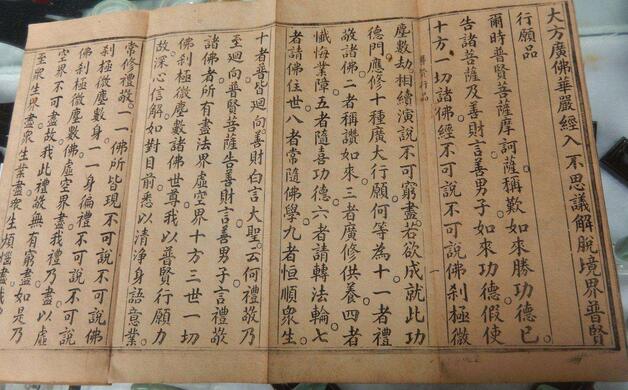 大方廣佛華嚴經入不思議解脫境界普賢
行願品
爾時普賢菩薩摩訶薩稱歎如來勝功德已
告諸菩薩及善財言善男子如來功德假使
十方一切諸佛經不可說不可說佛刹極微
一
塵數劫相續演說不可窮盡若欲成就此功
德門應修十種廣大行願何等為十一者禮
敬諸佛二者稱讚如來三者廣修供養四者
懺悔業障五者隨喜功德六者請轉法輪七
者請佛住世八者常隨佛學九者恒順衆生
十者普皆迴向善財白言大聖云何禮敬乃
至迴向普賢菩薩告善財言善男子言禮敬
諸佛者所有盡法界虛空界十方三世一切
佛刹極微塵數諸佛世尊我以普賢行願力
故深心信解如對目前悉以清淨身語意業
常修禮敬一一佛所皆現不可說不可說佛
刹極微塵數身一一身徧禮不可說不可說
佛刹極微塵數佛虛空界盡我禮乃盡以虛
空界不可盡故我此禮敬無有窮盡如是乃
至衆生界盡衆生業盡衆生煩惱盡我